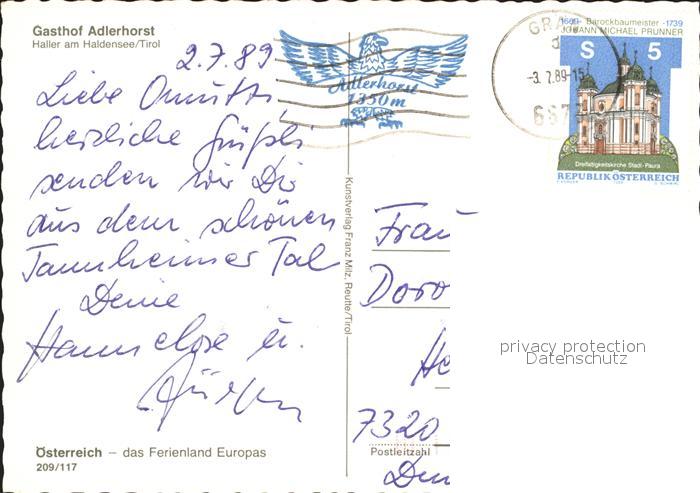 Gasthof Adlerhorst
Haller am Haldensee/Tirol
2.7.89
Liebe Omutti
herzliche Grüße
senden wir Dir
aus dem schönen
Tannheimer Tal
Deine
Hannelore u.
Jürgen
Österreich – das Ferienland Europas
209/117
Adlerhorst
1350m
Kunstverlag Franz Milz, Reutte/Tirol
GRÄN
-3. 7.89-15
667
1669 - Barockbaumeister - 1739
JOHANN MICHAEL PRUNNER
S 5
Dreifaltigkeitskirche Stadl-Paura
REPUBLIK ÖSTERREICH
Frau
Doro
He
7320
Postleitzahl
privacy protection
Datenschutz